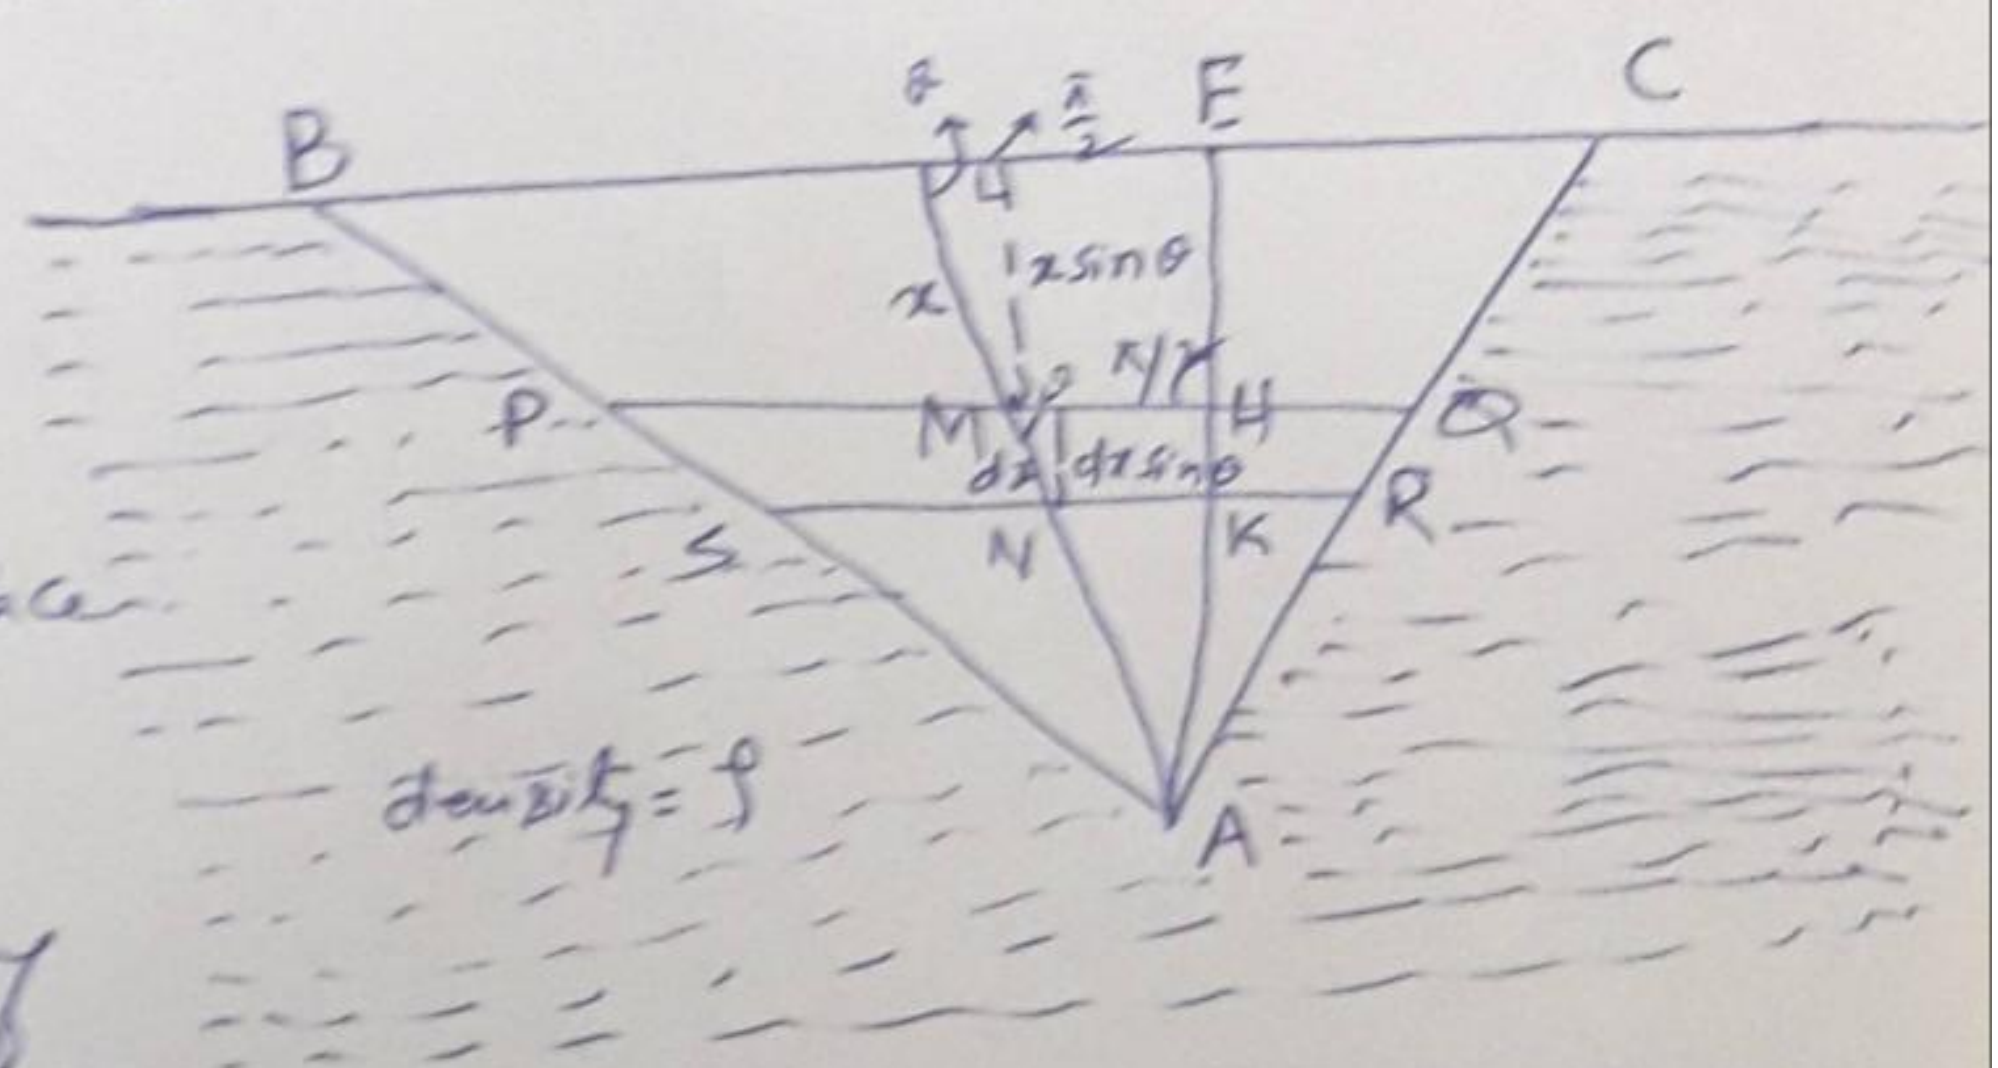 θ π/2 E C
B
x sin θ
x
P M H Q
dx dx sin θ
S N K R
density = ρ
A